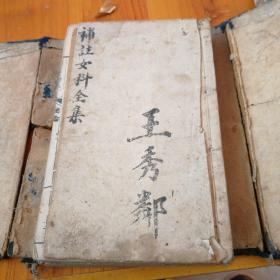 補註女科全集
王秀鄰